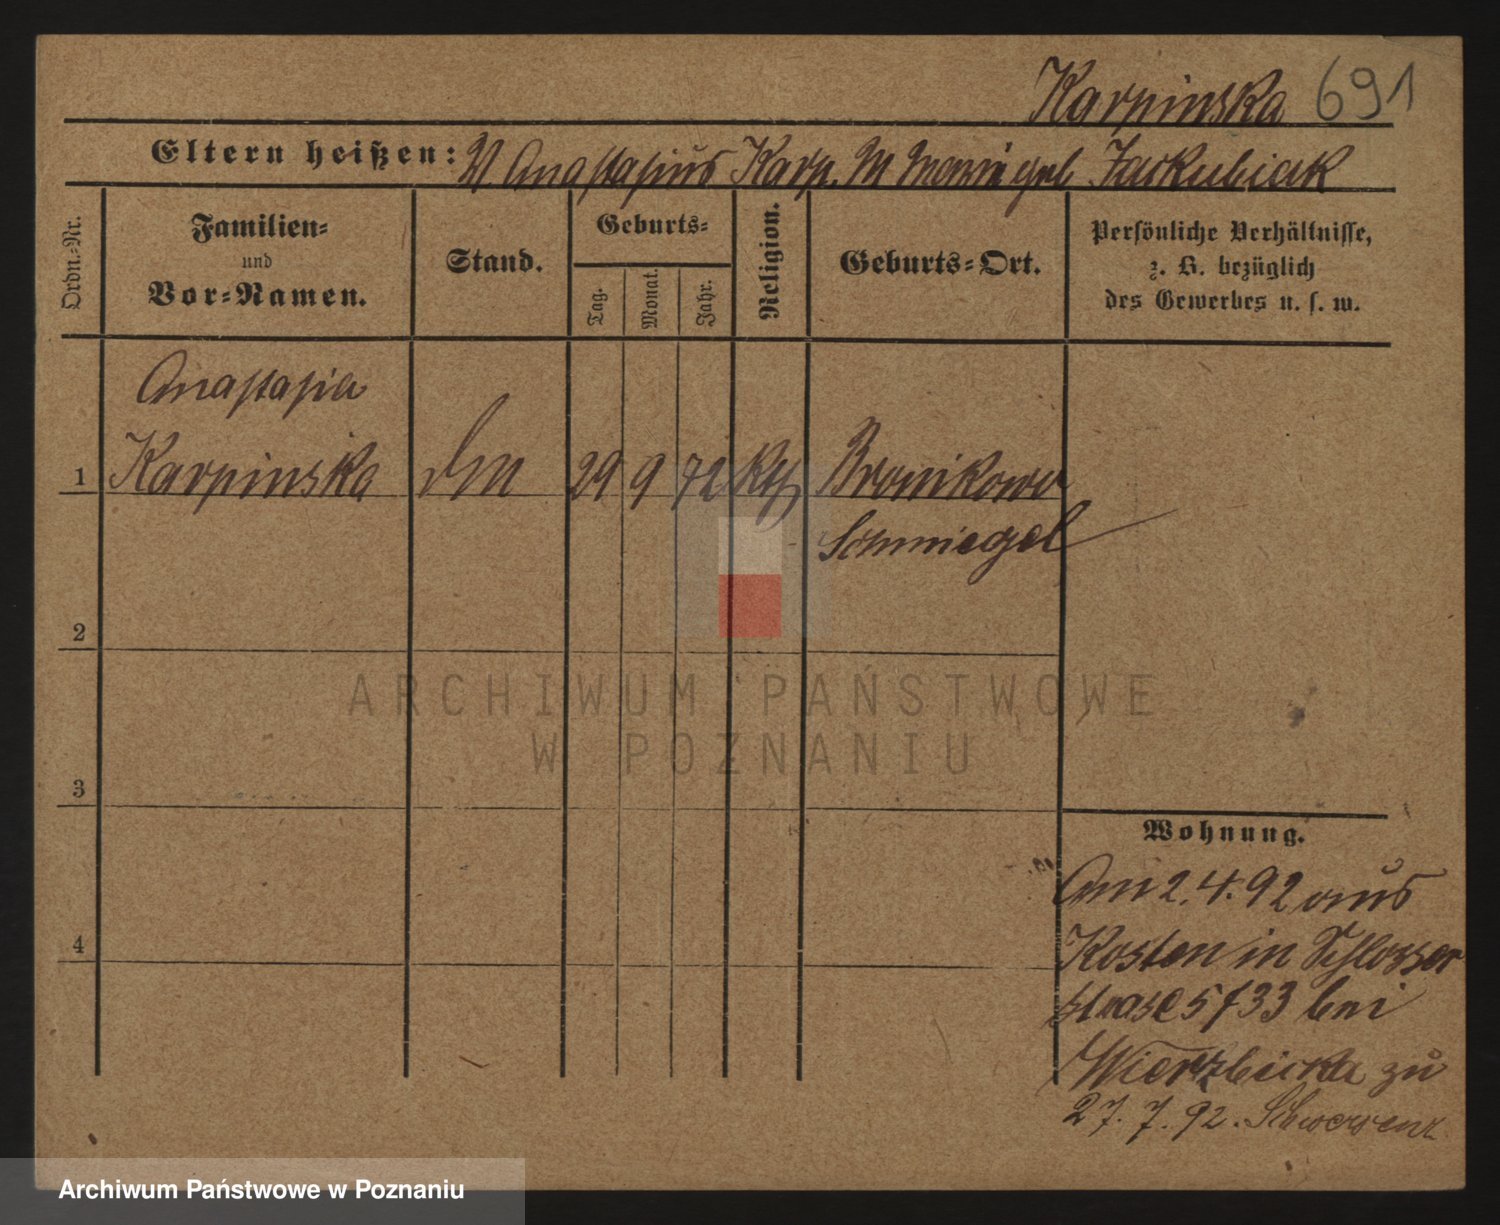 Karpinska 691
Eltern heißen: V Anastasius Karp. M Maria geb. Jackubiak
Ordn.-Nr.
Familien=
und
Vor=Namen.
Stand.
Geburts=
Tag.
Monat.
Jahr.
Religion.
Geburts=Ort.
Persönliche Verhältnisse,
z. B. bezüglich
des Gewerbes u. s. w.
Anastasia
1 Karpinska 29 9 72 Kth Bronikowo
Schmiegel
2
3
4
Wohnung.
Am 2.4.92 aus
Kosten in Schlosser
strase 5 f 33 bei
Wierzbicka zu
27. 7. 92. Schwersenz
ARCHIWUM PAŃSTWOWE
W POZNANIU
Archiwum Państwowe w Poznaniu